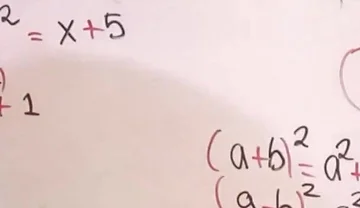 ² = x+5
+ 1
(a+b)² = a²+
(a-b)²